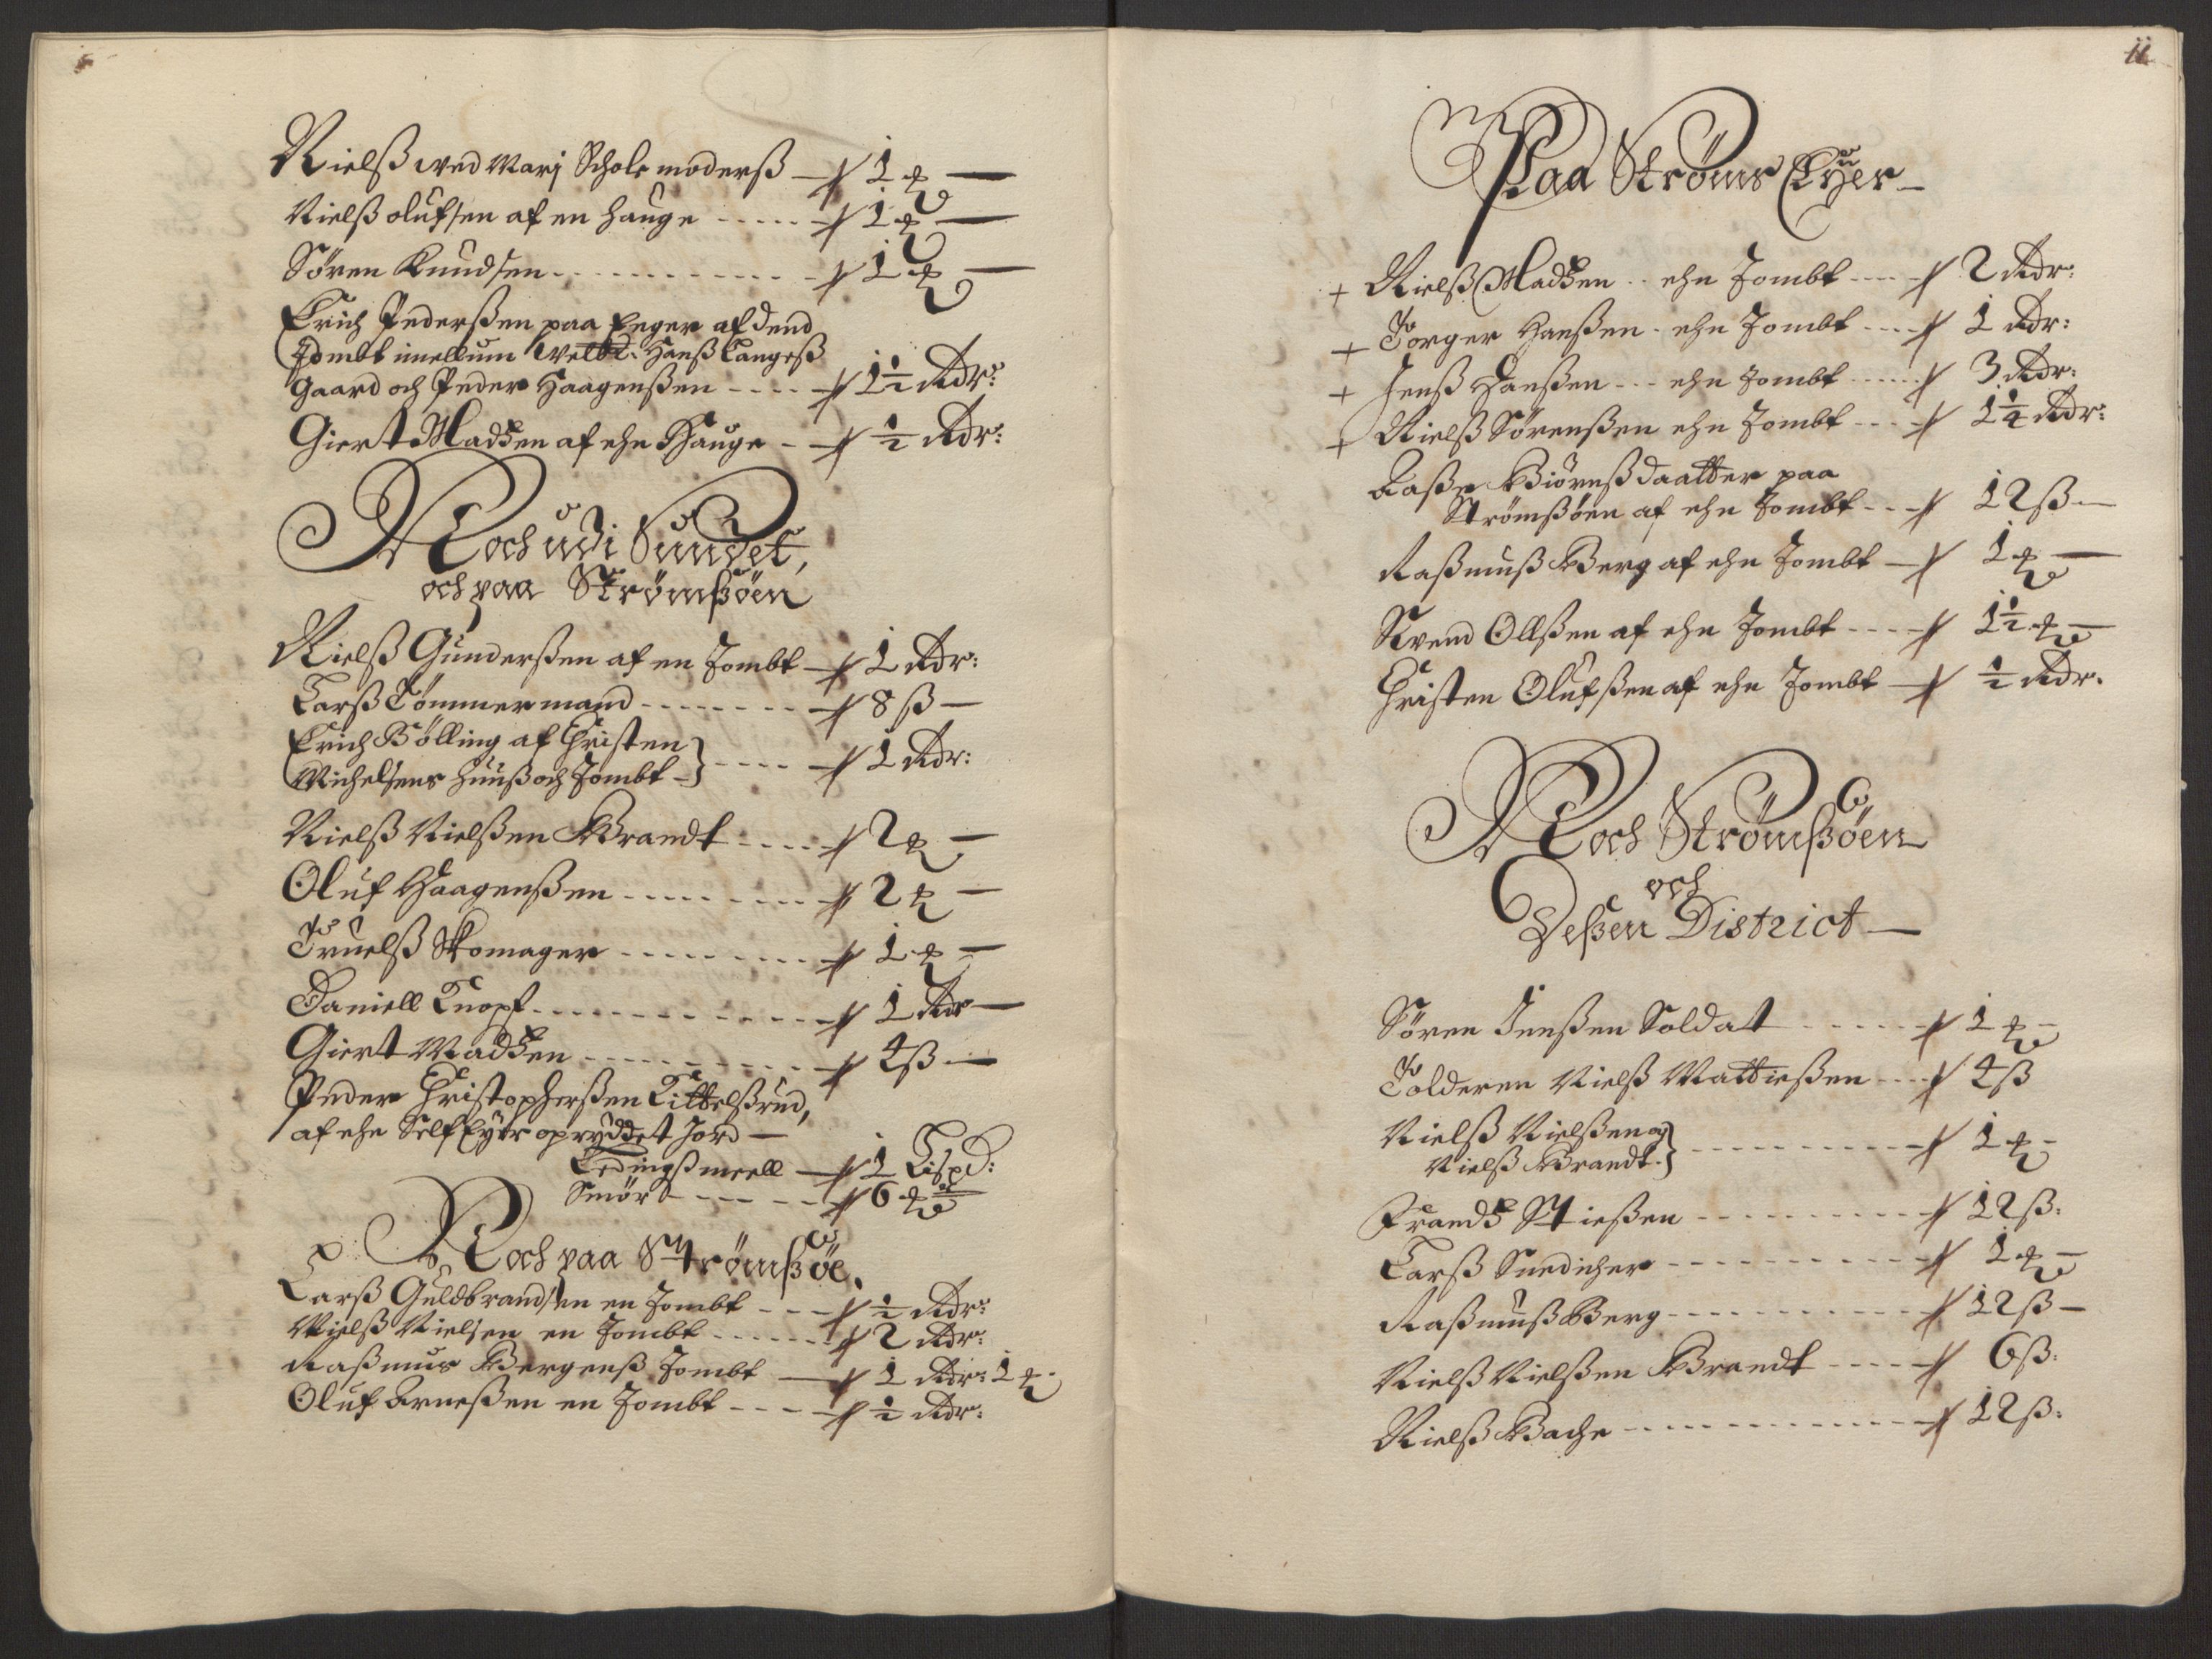 Nielß wed Marj Scholemoderß — 1 ℔ —
Nielß olufsen af en Hauge ----- 1 ℔ —
Sören Knudsen ------------ 1 ℔ —
Erich Pederßen paa Enger af dend
Tombt imellum Welbt. Hanß Langeß
Gaard och Peder Haagenßen ---- 1½ Rdr:
Giert Madßen af ehn Hauge -- ½ Rdr:
Noch udi Sundet,
och paa Strömßöen
Nielß Gunderßen af en Tombt — 1 Rdr:
Larß Tömmermand -------- 8 ß —
Erich Bölling af Christen
Michelsens Huuß och Tombt } ---- 1 Rdr:
Nielß Nielßen Brandt ---- 2 ℔ —
Oluf Haagenßen --------- 2 ℔ —
Truelß Skomager --------- 1 ℔ —
Daniell Knopf ------------ 1 Rdr —
Giert Madßen ---------- 4 ß —
Peder Christopherßen Kittelßrud,
af ehn Self Eyer opryddet Jord —
Ledingßmeell — 1 Lispd:
Smör ------ 6 ℔
Noch paa Strömßöe.
Larß Guldbrandsen en Tombt --- ½ Rdr:
Nielß Nielsen en Tombt ------ 2 Rdr:
Raßmus Bergenß Tombt — 1 Rdr: 1 ℔.
Oluf Arneßen en Tombt ---- ½ Rdr:
11
Paa Ströms Eyer —
+ Nielß Madßen -- ehn Tombt ---- 2 Rdr:
+ Torger Hanßen - ehn Tombt ---- 1 Rdr:
+ Jenß Hanßen --- ehn Tombt ----- 3 Rdr:
+ Nielß Sörenßen ehn Tombt ---- 1¼ Rdr:
Aaße Biörnßdaatter paa
Strömßöen af ehn Tombt --- 12 ß —
Raßmuß Berg af ehn Tombt — 1 ℔ —
Svend Ollßen af ehn Tombt ---- 1½ ℔ —
Christen Olufßen af ehn Tombt — ½ Rdr.
Noch Strömßöen
och
Deßen District —
Sören Jenßen Soldat ------ 1 ℔ —
Tolderen Nielß Mattießen ---- 4 ß
Nielß Nielßen og
Nielß Brandt. } ---------- 1 ℔ -
Frandß Stießen ---------- 12 ß:
Larß Snedicher ---------- 1 ℔ —
Raßmuß Berg ---------- 12 ß —
Nielß Nielßen Brandt ---- 6 ß:
Nielß Bache ------------ 12 ß: